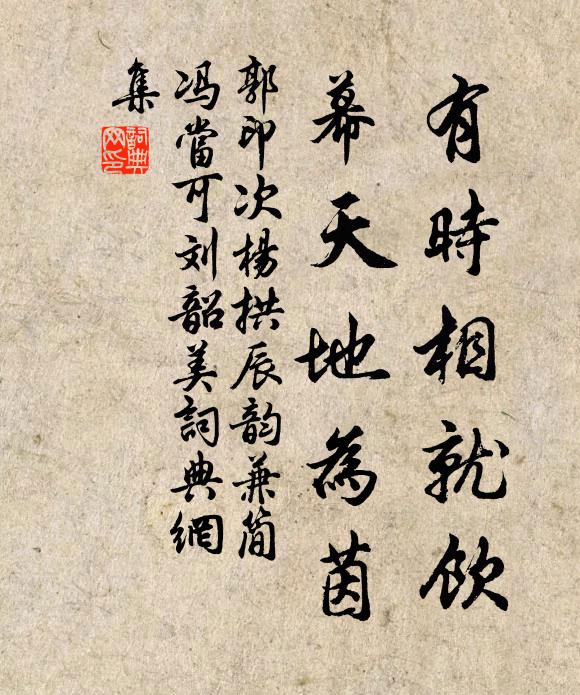 有時相就飲
幕天地為茵
郭印次楊拱辰韵兼簡
冯當可刘韶美詞典網
集
詞典
网印